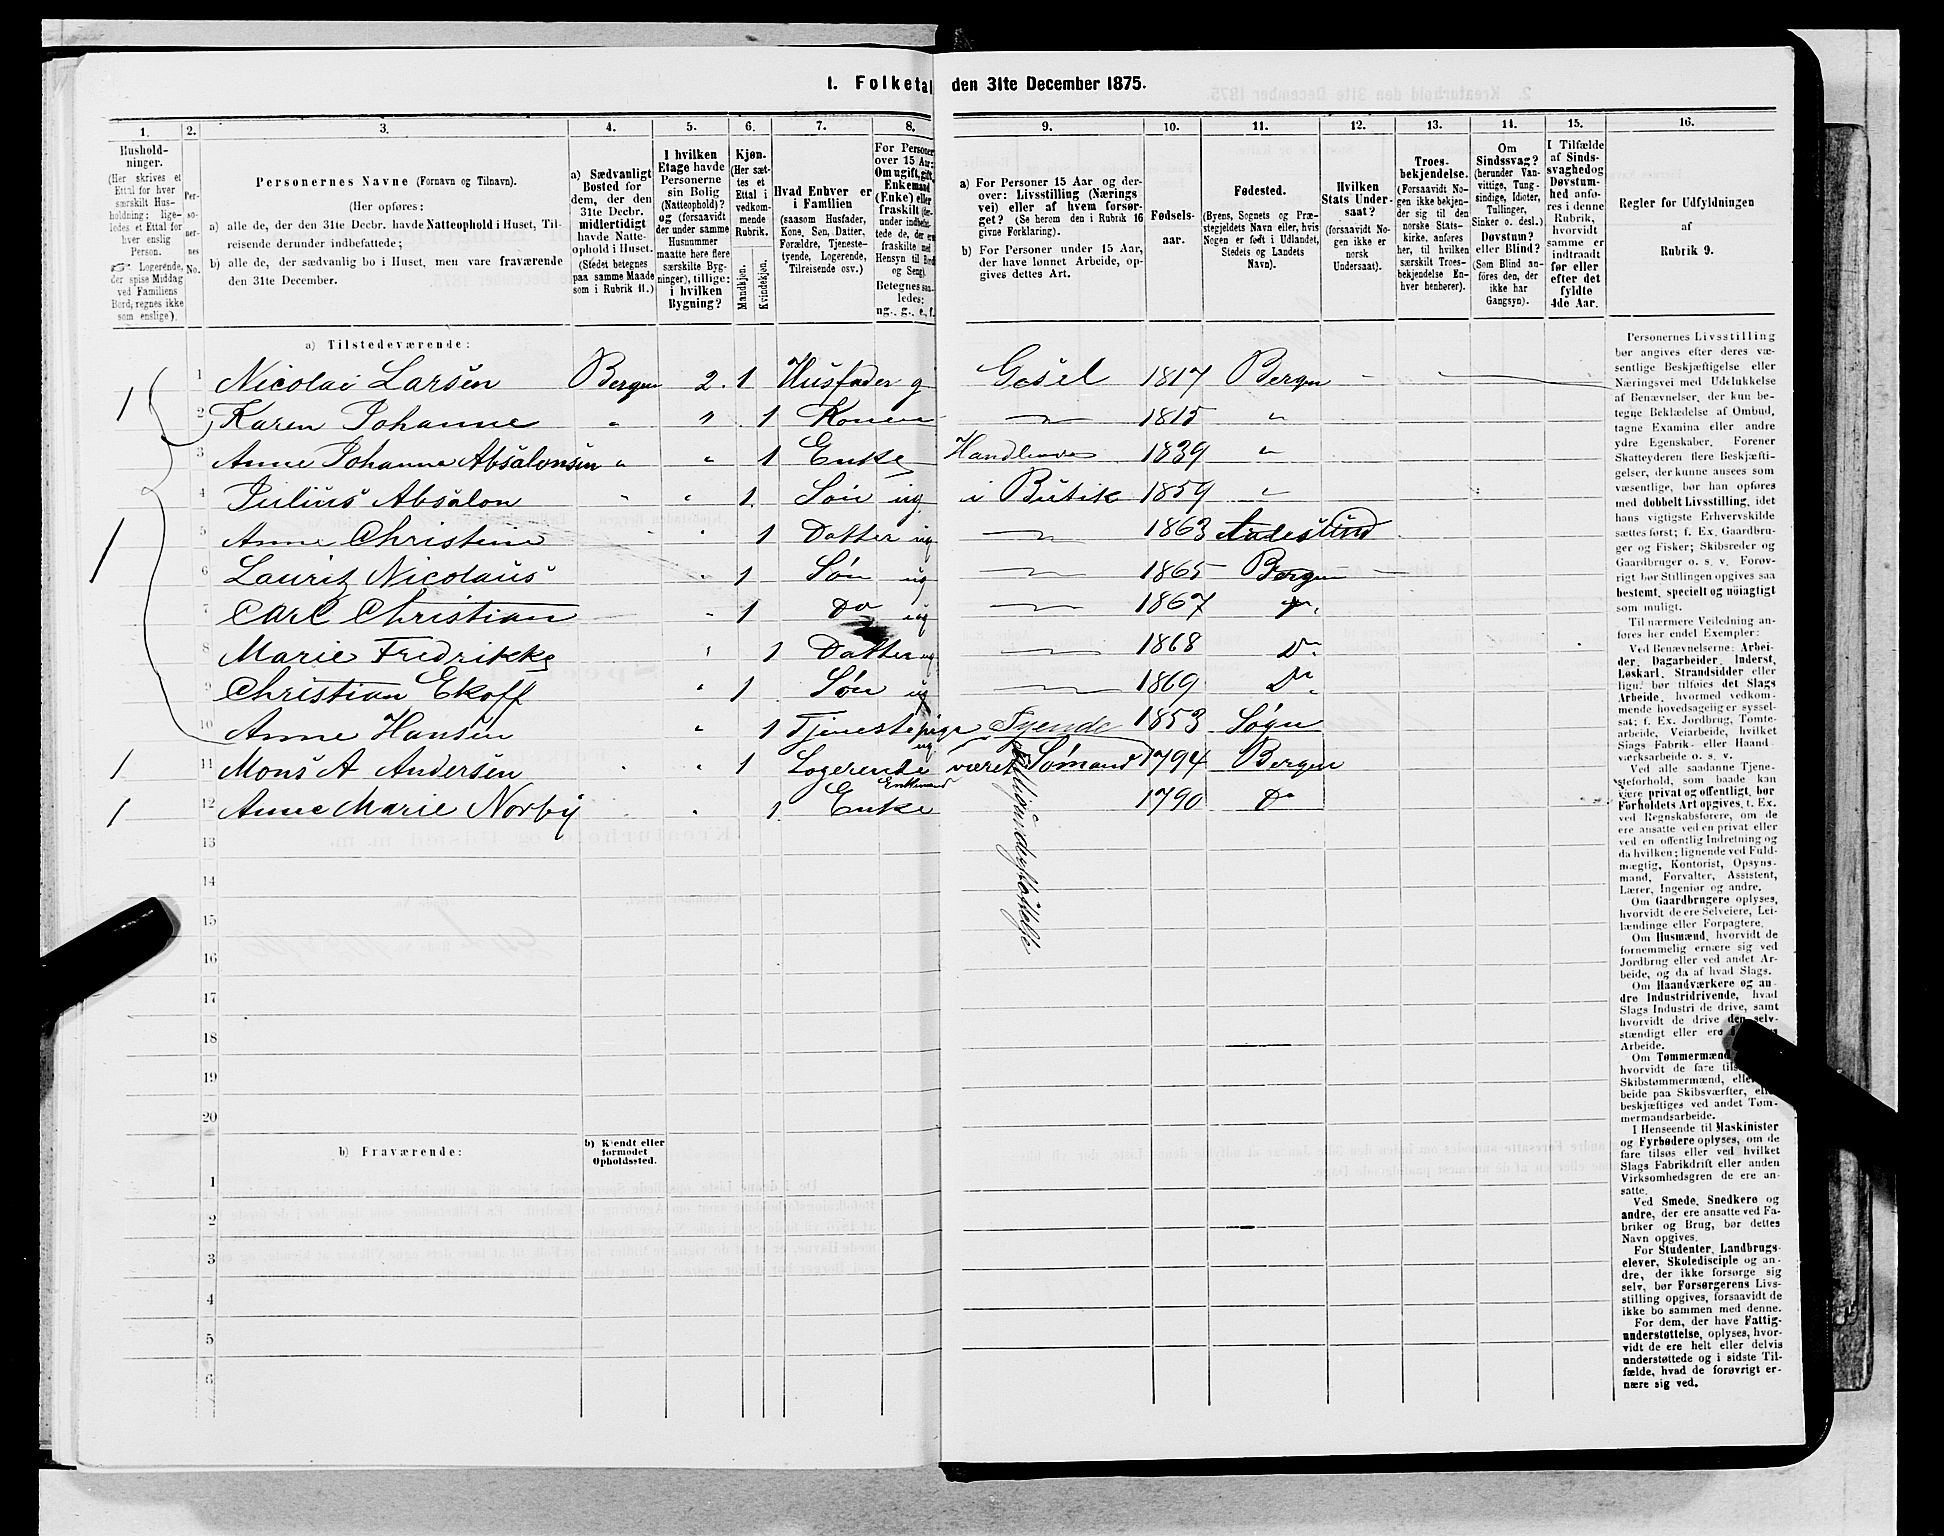 1. Folketal den 31te December 1875.
1. 2. 3. 4. 5. 6. 7. 8. 9. 10. 11. 12. 13. 14. 15. 16.
Hushold-
ninger.
(Her skrives et
Ettal for hver
særskilt Hus-
holdning; lige-
ledes et Ettal for
hver enslig
Person.
Logerende,
der spise Middag
ved Familiens
Bord, regnes ikke
som enslige).
Per-
so-
ner-
nes
No.
Personernes Navne (Fornavn og Tilnavn).
(Her opføres:
a) alle de, der den 31te Decbr. havde Natteophold i Huset, Til-
reisende derunder indbefattede;
b) alle de, der sædvanlig bo i Huset, men vare fraværende
den 31te December.
a) Sædvanligt
Bosted for
dem, der den
31te Decbr.
midlertidigt
havde Natte-
ophold i Huset.
(Stedet betegnes
paa samme Maade
som i Rubrik 11.)
I hvilken
Etage havde
Personerne
sin Bolig
(Natteophold)?
og (forsaavidt
der under samme
Husnummer
maatte høre flere
særskilte Byg-
ninger), tillige:
i hvilken
Bygning?
Kjøn.
(Her sæt-
tes et
Ettal i
vedkom-
mende
Rubrik.
Mandkjøn.
Kvindekjøn.
Hvad Enhver er
i Familien
(saasom Husfader,
Kone, Søn, Datter,
Forældre, Tjeneste-
tyende, Logerende,
Tilreisende osv.)
For Personer
over 15 Aar:
Om ugift, gift,
Enkemand
(Enke) eller
fraskilt
Betegnes saa-
ledes:
ug., g., e., f.
a) For Personer 15 Aar og der-
over: Livsstilling (Nærings
vei) eller af hvem forsør-
get? (Se herom den i Rubrik 16
givne Forklaring).
b) For Personer under 15 Aar,
der have lønnet Arbeide, op-
gives dettes Art.
Fødsels-
aar.
Fødested.
(Byens, Sognets og Præ-
stegjeldets Navn eller, hvis
Nogen er født i Udlandet,
Stedets og Landets
Navn).
Hvilken
Stats Under-
saat?
(forsaavidt No-
gen ikke er
norsk
Undersaat).
Troes-
bekjendelse.
(Forsaavidt No-
gen ikke bekjen-
der sig til den
norske Stats-
kirke, anføres
her, til hvilken
særskilt Troes-
bekjendelse En-
hver henhører).
Om
Sindssvag?
(herunder Van-
vittige, Tung-
sindige, Idioter,
Tullinger,
Sinker o. desl.)
Døvstum?
eller Blind?
(Som Blind an-
føres den, der
ikke har
Gangsyn).
I Tilfælde
af Sinds-
svaghed og
Døvstum-
hed anfø-
res i denne
Rubrik,
hvorvidt
samme er
indtraadt
før eller
efter det
fyldte
4de Aar.
Regler for Udfyldningen
af
Rubrik 9.
a) Tilstedeværende:
1 1 Nicolai Larsen Bergen 2. 1 Husfader g Gøsel 1817 Bergen
2 Karen Johanne 1 Konen 1815 "
3 Anne Johanne Absalonsen " " 1 Enke 1839 "
4 Julius Absalon " " 1 Søn ug i Butik 1859 "
1 5 Anne Christine 1 Datter ug 1863
6 Lauritz Nicolaus 1 Søn ug 1865 Bergen
7 Carl Christian 1 Do ug 1867 Do
8 Marie Fredrikke 1 Datter ug 1868 Do
9 Christian Ekoff 1 Søn ug 1869 Do
10 Anne Hansen 1 Tjenestepige ug Tyende 1853 Sogn
1 11 Mons A Andersen 1 Logerende Enkemand været Sømand 1794 Bergen
1 12 Anne Marie Norby 1 Enke 1790 Do
13
14
15
16
17
18
19
20
b) Fraværende:
b) Kjendt eller
formodet
Opholdssted.
1
2
3
4
5
6
Personernes Livsstilling
bør angives efter deres væ-
sentlige Beskjæftigelse eller
Næringsvei med Udelukkelse
af Benævnelser, der kun be-
tegne Beklædelse af Ombud,
tagne Examina eller andre
ydre Egenskaber. Forener
Skatteyderen flere Beskjæfti-
gelser, der kunne ansees som
væsentlige, bør han opføres
med dobbelt Livsstilling, idet
hans vigtigste Erhvervskilde
sættes først; f. Ex. Gaardbru-
ger og Fisker; Skibsreder og
Gaardbruger o. s. v. Forøv-
rigt bør Stillingen opgives saa
bestemt, specielt og nøiagtigt
som muligt.
Til nærmere Veiledning an-
føres her endel Exempler:
Ved Benævnelserne: Arbei-
der, Dagarbeider, Inderst,
Løskarl, Strandsidder eller
lign. bør tilføies det Slags
Arbeide, hvormed vedkom-
mende hovedsagelig er syssel-
sat; f. Ex. Jordbrug, Tomte-
arbeide, Veiarbeide, hvilket
Slags Fabrik- eller Haand-
værksarbeide o. s. v.
Ved alle saadanne Tjene-
steforhold, som baade kan
være privat og offentligt, bør
Forholdets Art opgives, t. Ex.
ved Regnskabsførere, om de
ere ansatte ved en privat eller
ved en offentlig Indretning og
da hvilken; lignende ved Fuld-
mægtig, Kontorist, Opsyns-
mand, Forvalter, Assistent,
Lærer, Ingeniør og andre.
Om Gaardbrugere oplyses,
hvorvidt de ere Selveiere, Lei-
lændinge eller Forpagtere.
Om Husmænd, hvorvidt de
fornemmelig ernære sig ved
Jordbrug eller ved andet Ar-
beide, og da af hvad Slags.
Om Haandværkere og an-
dre Industridrivende, hvad
Slags Industri de drive, samt
hvorvidt de drive den selv-
stændigt eller ere
Arbeide.
Om Tømmermænd
hvorvidt de fare
Skibstømmermænd,
beide paa Skibsværfter,
beskjæftiges ved andet Tøm-
mermandsarbeide.
I Henseende til Maskinister
og Fyrbødere oplyses, om de
fare tilsøs eller ved hvilket
Slags Fabrikdrift eller anden
Virksomhedsgren de ere an-
satte.
Ved Smede, Snedkere og
andre, der ere ansatte ved Fa-
briker og Brug, bør dettes
Navn opgives.
For Studenter, Landbrugs-
elever, Skoledisciple og an-
dre, der ikke forsørge sig
selv, bør Forsørgerens Livs-
stilling opgives, forsaavidt de
ikke bo sammen med denne.
For dem, der have Fattig-
understøttelse, oplyses, hvor-
vidt de ere helt eller delvis
understøttede og i sidste Til-
fælde, hvad de forøvrigt er-
nære sig ved.